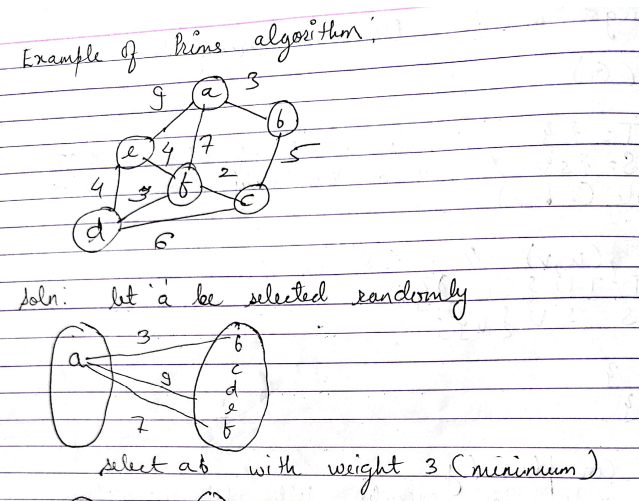 Example of Prims algorithm;
9 a 3
b
e 4 7
5
4 3 f 2 c
d
6
soln: let 'a' be selected randomly
a 3 b
c
9 d
e
7 f
select ab with weight 3 (mininum)